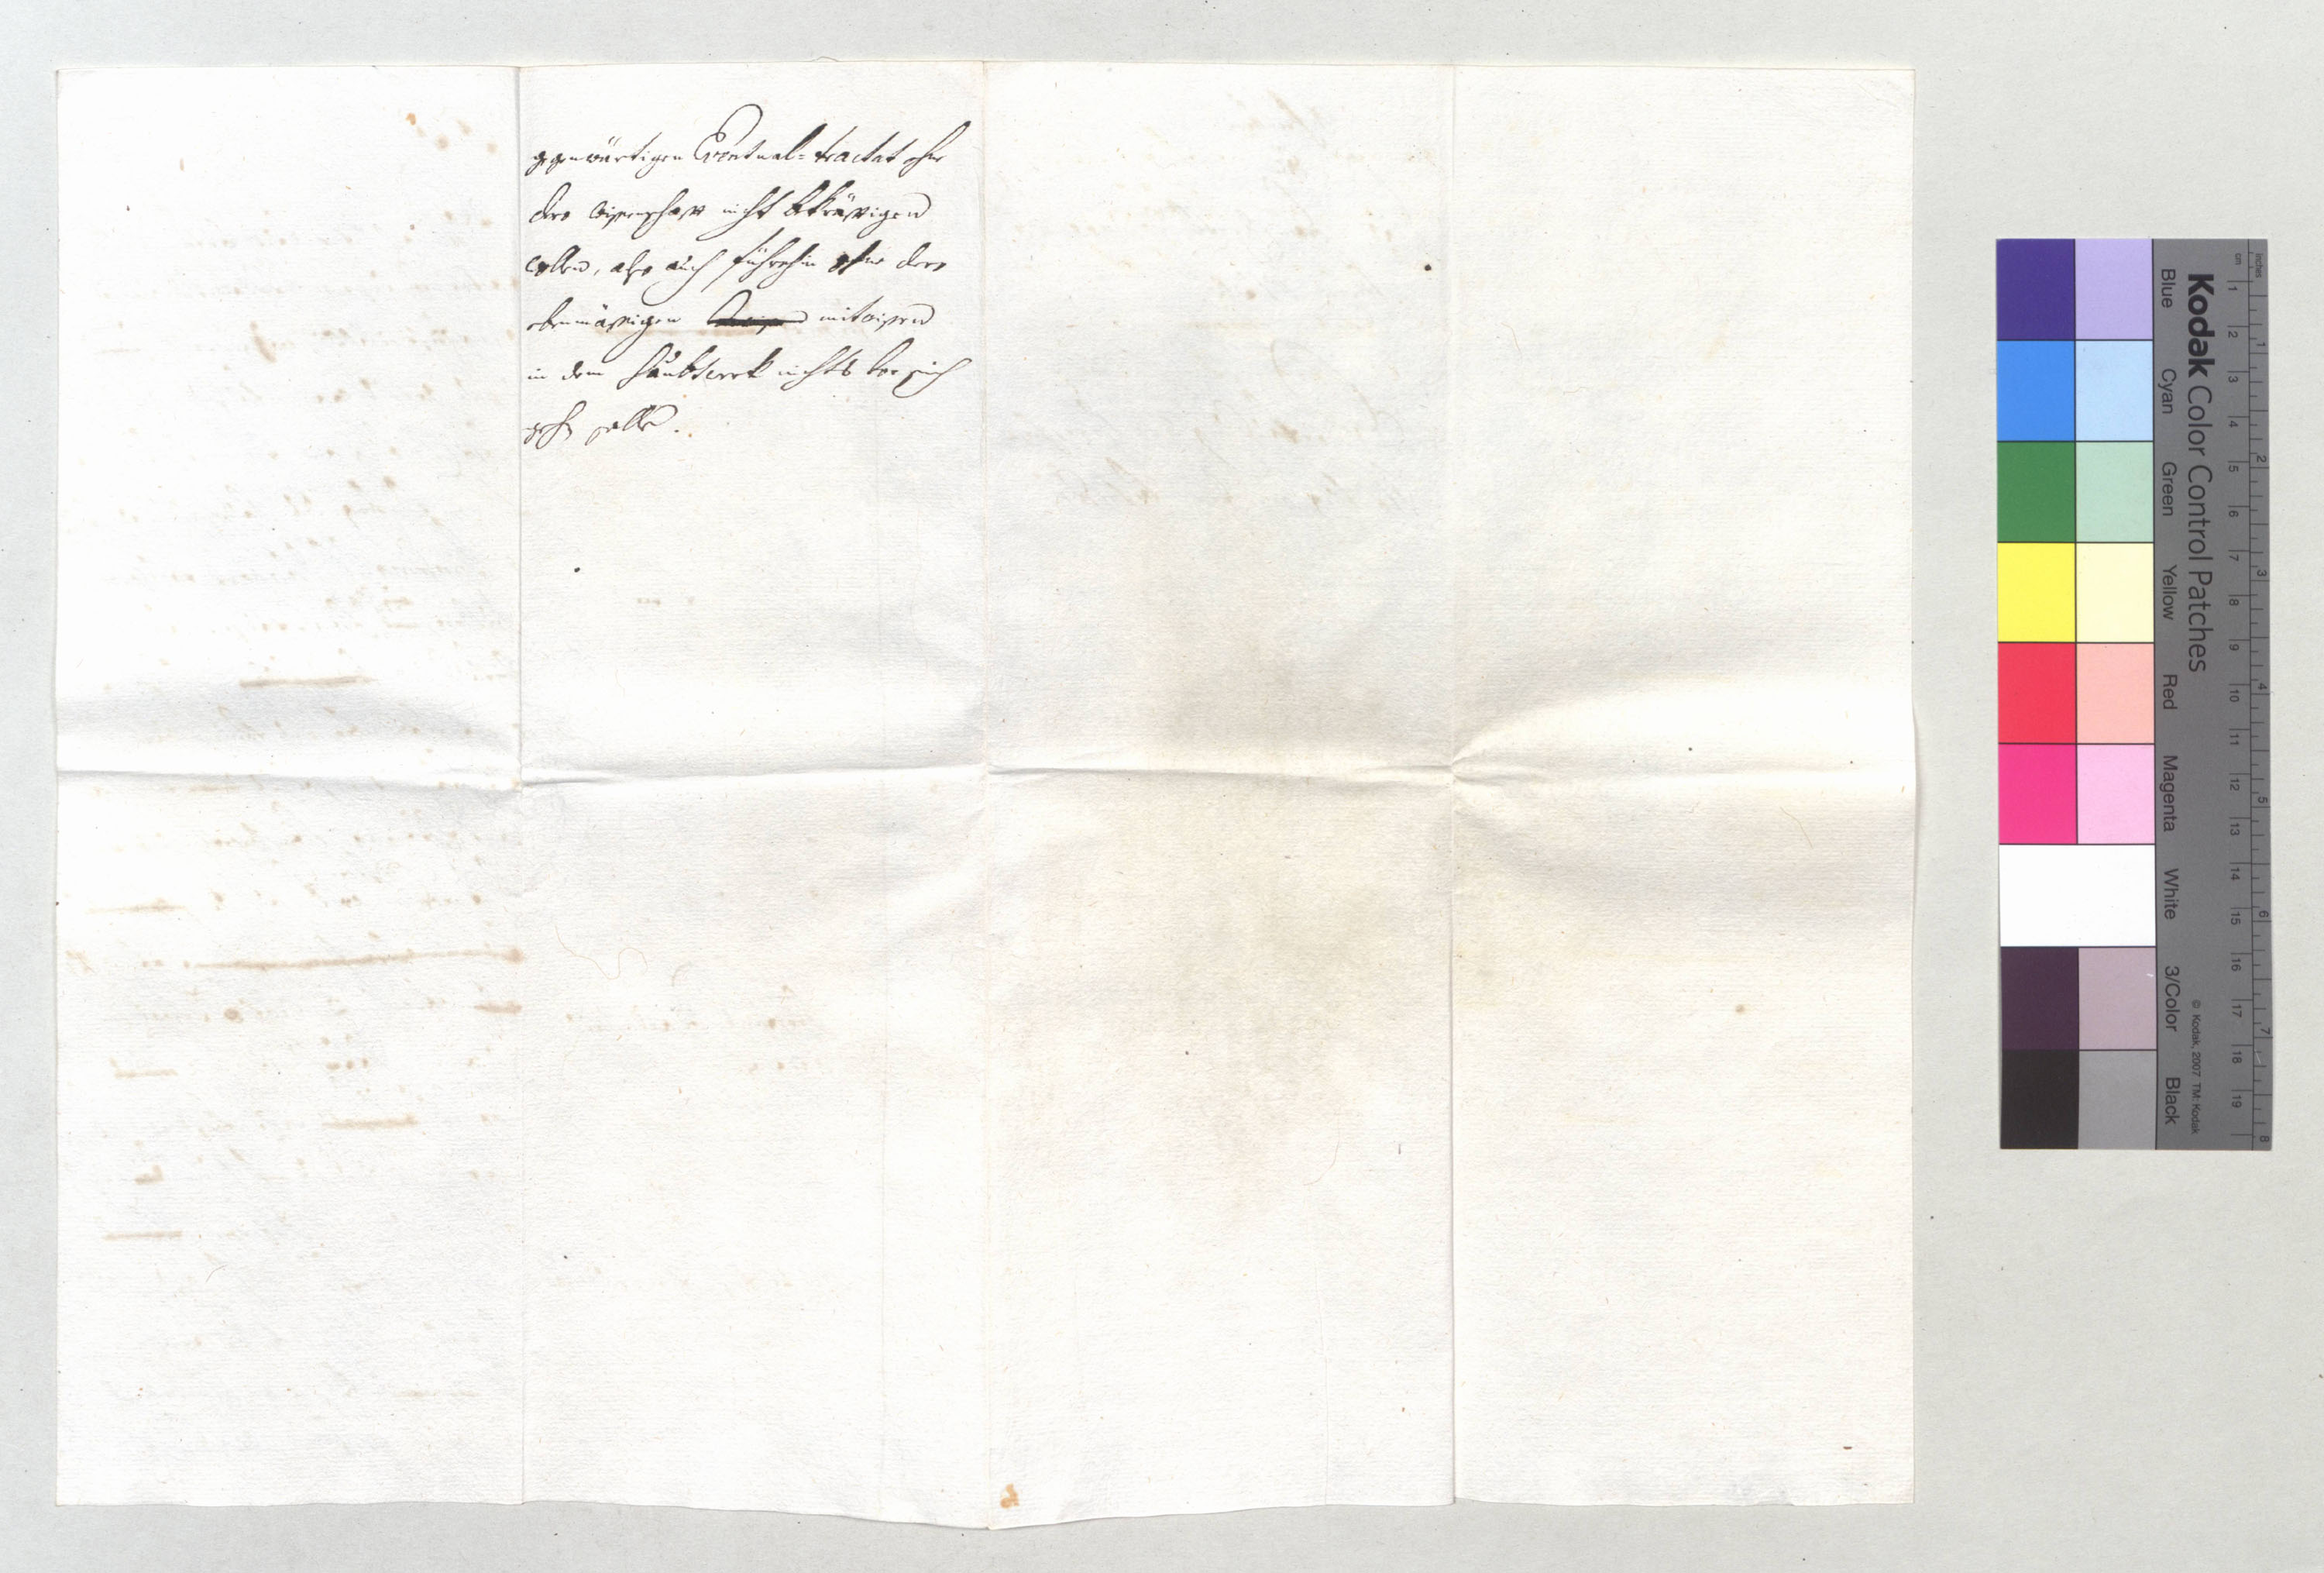 gegenwärtigen Eventual-tractat ohne
dero wissenschafft nicht bekräfftigen
wollen, also auch führohin ohne dero
ebenmässigen mitwissen
in dem haubtwerk nichts vor sich
gehen solle.
Kodak Color Control Patches
© Kodak, 2007 TM: Kodak
Blue Cyan Green Yellow Red Magenta White 3/Color Black
cm 1 2 3 4 5 6 7 8 9 10 11 12 13 14 15 16 17 18 19
inches 1 2 3 4 5 6 7 8